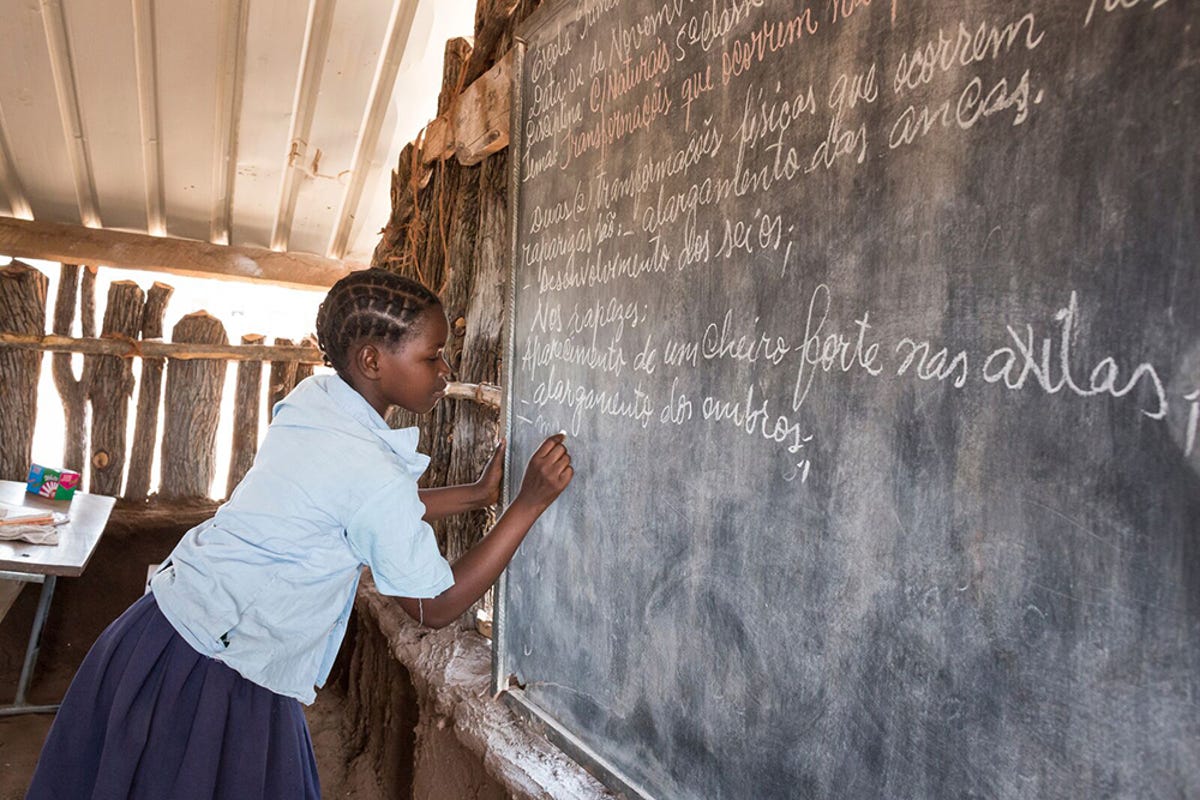 Escola
Data: 02 de Novemb
Disciplina: C/Naturais 5ª classe
Tema: Transformaçõs que ocorrem na
Duas (2) transformaçoẽs físicas que ocorrem nas
raparigas são: - alargamento das ancas.
- Desenvolvimento dos seios;
Nos rapazes:
Aparecimento de um cheiro forte nas axilas,
- alargamento dos ombros;